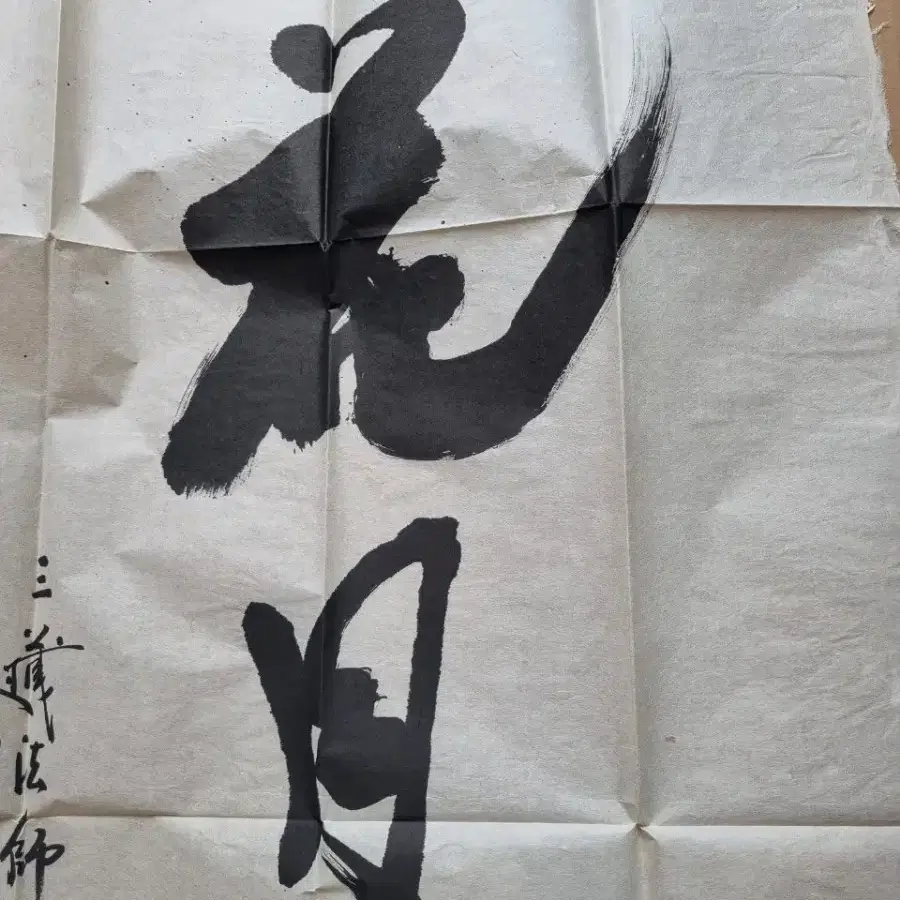 花月
三藏法師